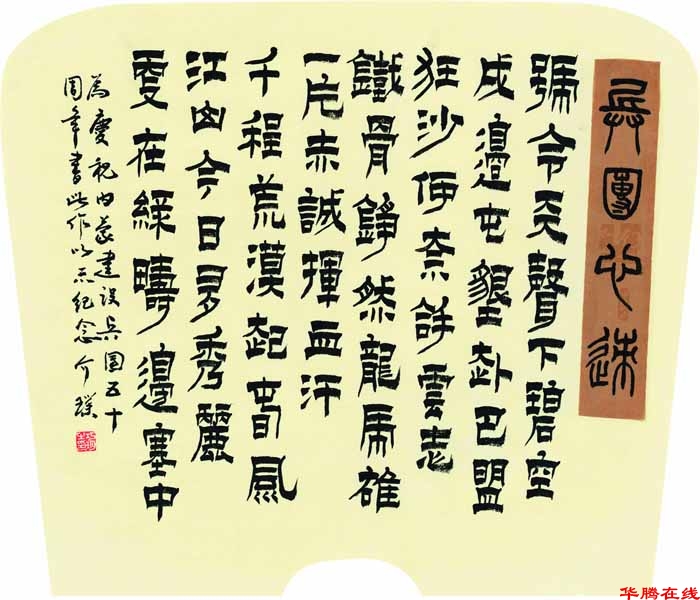 兵團心迹
號令天聲下碧空
戍邊屯墾赴巴盟
狂沙奈許雲志
鐵骨錚然龍虎雄
一片赤誠揮血汗
千程荒漠起旾風
江山今日多秀麗
在綠疇邊塞中
為慶祝内蒙建设兵團五十
周年書此作以示紀念介璞
华腾在线